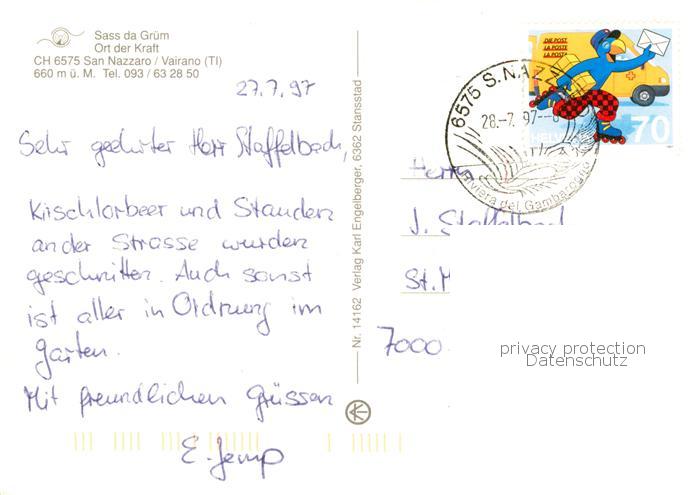 Sass da Grüm
Ort der Kraft
CH 6575 San Nazzaro / Vairano (TI)
660 m ü. M. Tel. 093 / 63 28 50
27.7.97
Sehr geehrter Herr Staffelbach,
Kirschlorbeer und Stauden
an der Strasse wurden
geschnitten. Auch sonst
ist alles in Ordnung im
Garten.
Mit freundlichen Grüssen
E. Jemp
Nr. 14162 Verlag Karl Engelberger, 6362 Stansstad
DIE POST
LA POSTE
LA POSTA
HELVETIA
70
6575 S. NAZZ
28.-7. 97--8
Riviera del Gambarogno
Herrn
J. Staffelbach
St. M
7000
privacy protection
Datenschutz